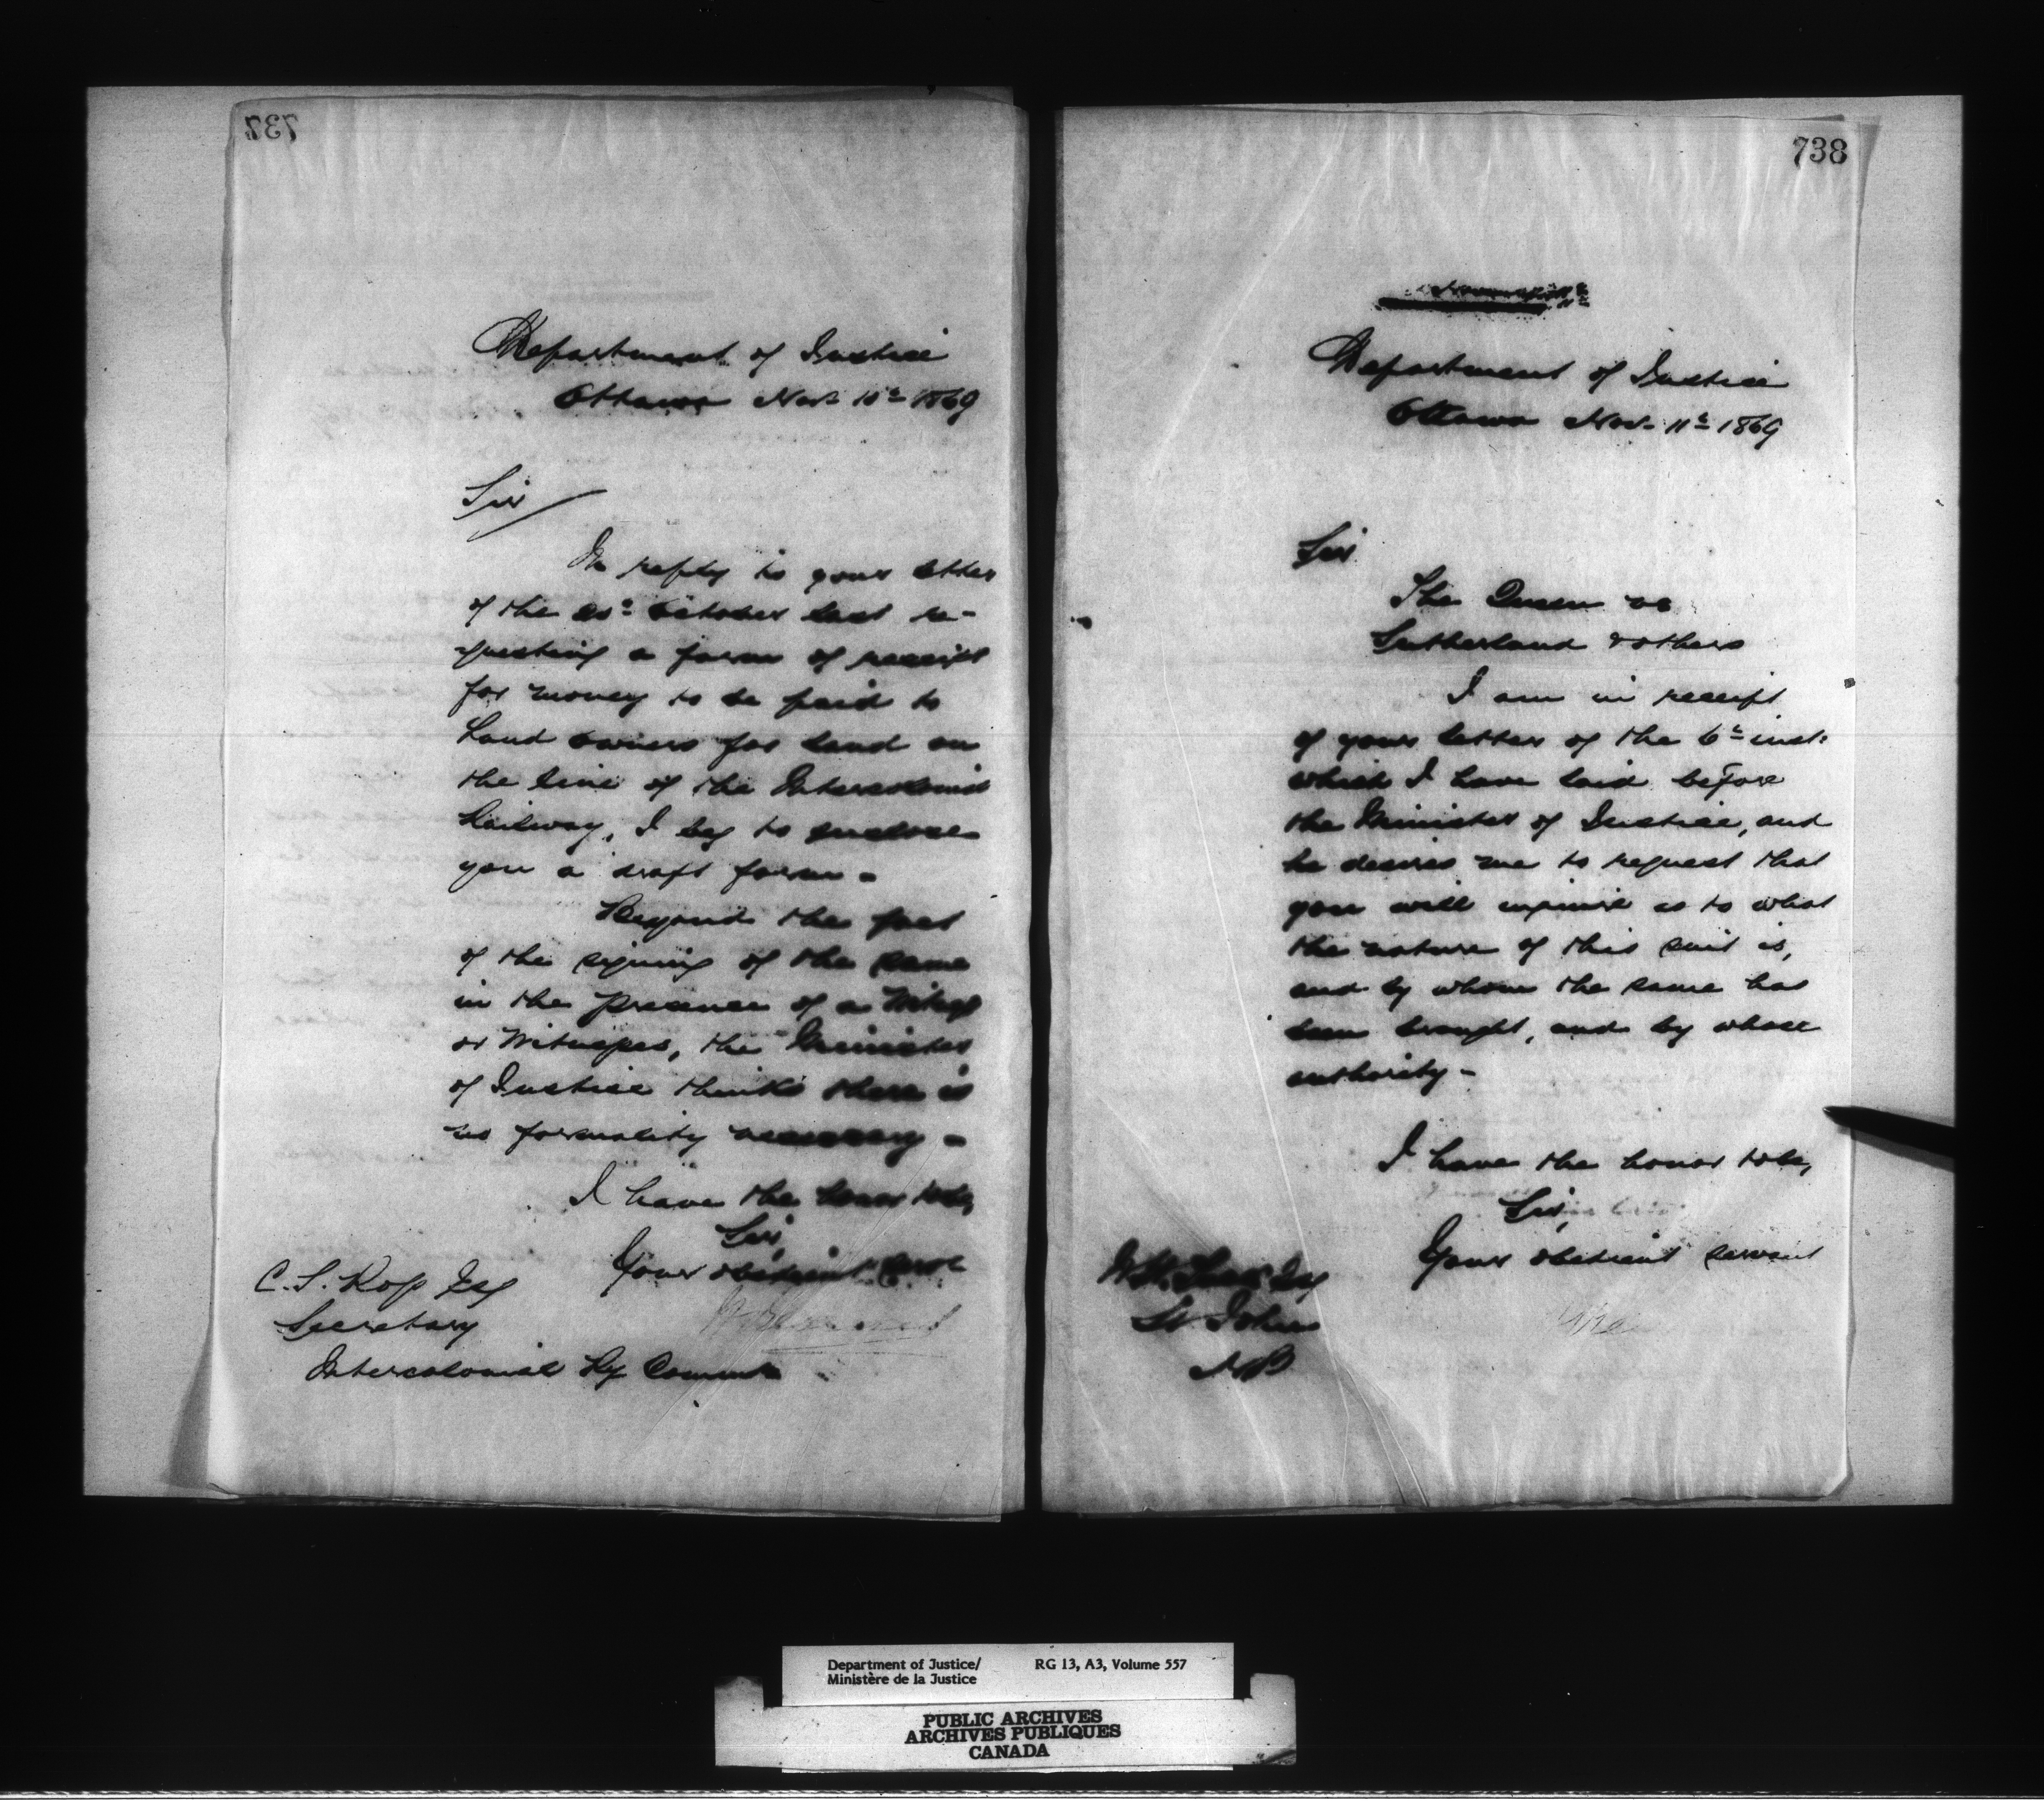 737
Department of Justice
Ottawa Nov. 10th 1869
Sir
In reply to your letter
of the October last re-
questing a form of receipt
for money to be paid to
Land owners for land on
the line of the Intercolonial
Railway, I beg to enclose
you a draft form -
Beyond the fact
of the signing of the same
in the presence of a Witness
or Witnesses, the Minister
of Justice thinks there is
no formality necessary -
I have the honor to be,
Sir,
Your obedient servt
C. S. Ross Esq
Secretary
Intercolonial Ry Commn
738
Department of Justice
Ottawa Nov. 11th 1869
Sir
The Queen vs
Sutherland & others
I am in receipt
of your letter of the 6th inst.
which I have laid before
the Minister of Justice, and
he desires me to request that
you will inquire as to what
the nature of this suit is,
and by whom the same has
been brought, and by whose
authority -
I have the honor to be,
Sir,
Your obedient servant
W. H. Esq
St. John
N B
Department of Justice/ RG 13, A3, Volume 557
Ministère de la Justice
PUBLIC ARCHIVES
ARCHIVES PUBLIQUES
CANADA